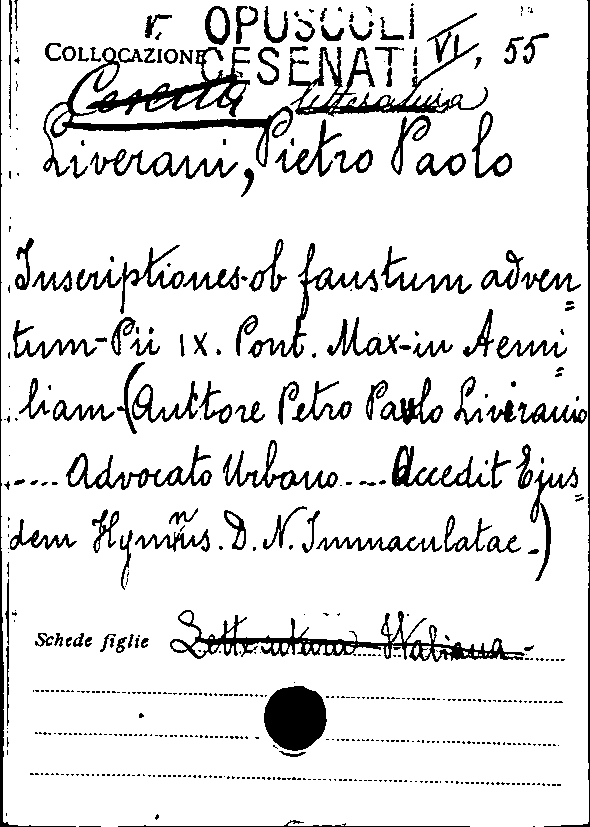 V. OPUSCOLI
COLLOCAZIONE CESENATI VI, 55
Cesena letteratura
Liverani, Pietro Paolo
Inscriptiones ob faustum adven=
tum-Pii IX. Pont. Max-in Aemi=
liam-(Auttore Petro Paulo Liveranio
.... Advocato Urbano .... Accedit Ejus=
dem Hymnus. D. N. Immaculatae-)
Schede figlie Letteratura Italiana-